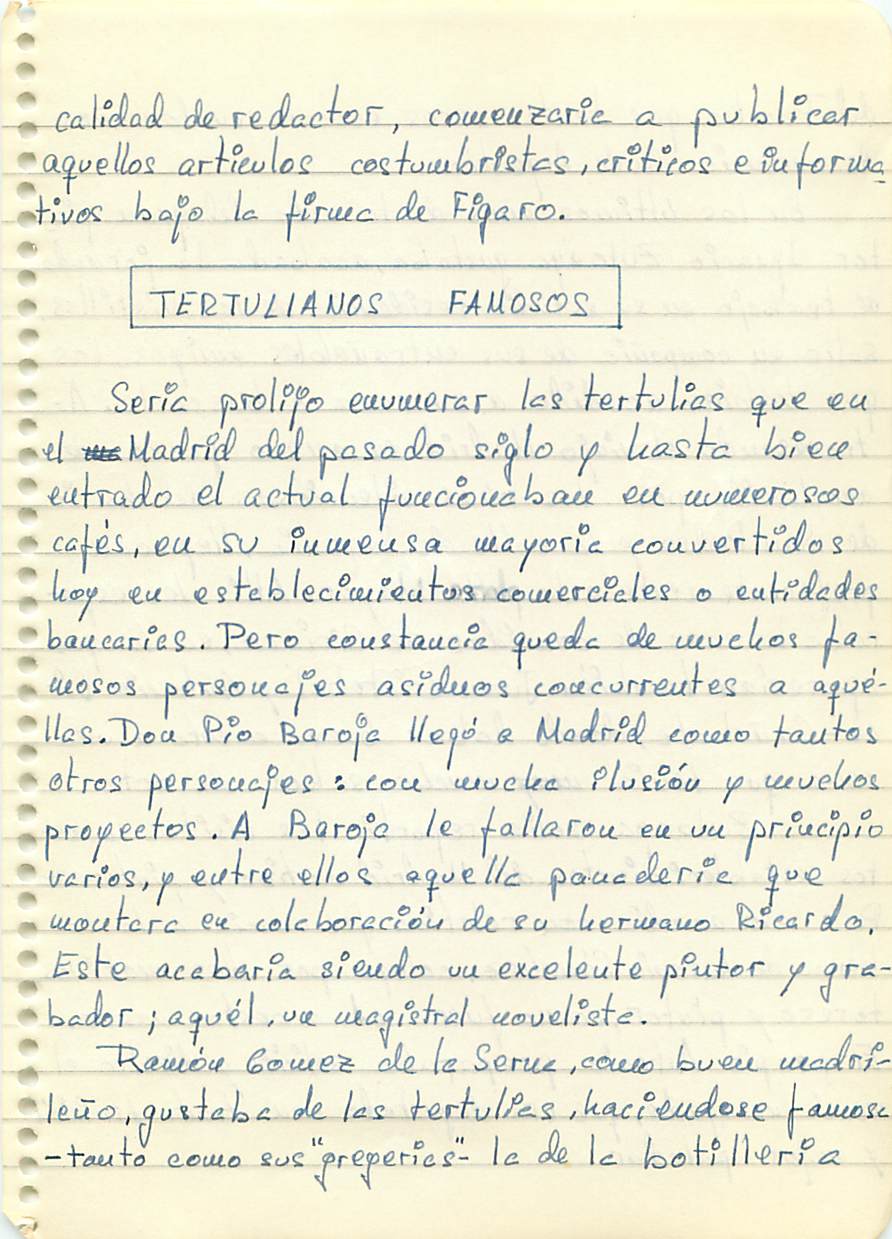 calidad de redactor, comenzaria a publicar
aquellos articulos costumbristas, críticos e informa
tivos bajo la firma de Fígaro.
TERTULIANOS FAMOSOS
Seria prolijo enumerar las tertulias que en
el Madrid del pasado siglo y hasta bien
entrado el actual funcionaban en numerosos
cafés, en su inmensa mayoria convertidos
hoy en establecimientos comerciales o entidades
bancarias. Pero constancia queda de muchos fa-
mosos personajes asiduos concurrentes a aqué-
llas. Don Pío Baroja llegó a Madrid como tantos
otros personajes: con mucha ilusión y muchos
proyectos. A Baroja le fallaron en un principio
varios, y entre ellos aquella panaderia que
montara en colaboración de su hermano Ricardo.
Este acabaría siendo un excelente pintor y gra-
bador; aquél, un magistral novelista.
Ramón Gomez de la Serna, como buen madri-
leño, gustaba de las tertulias, haciendose famosa
-tanto como sus "gregerias"- la de la botillería